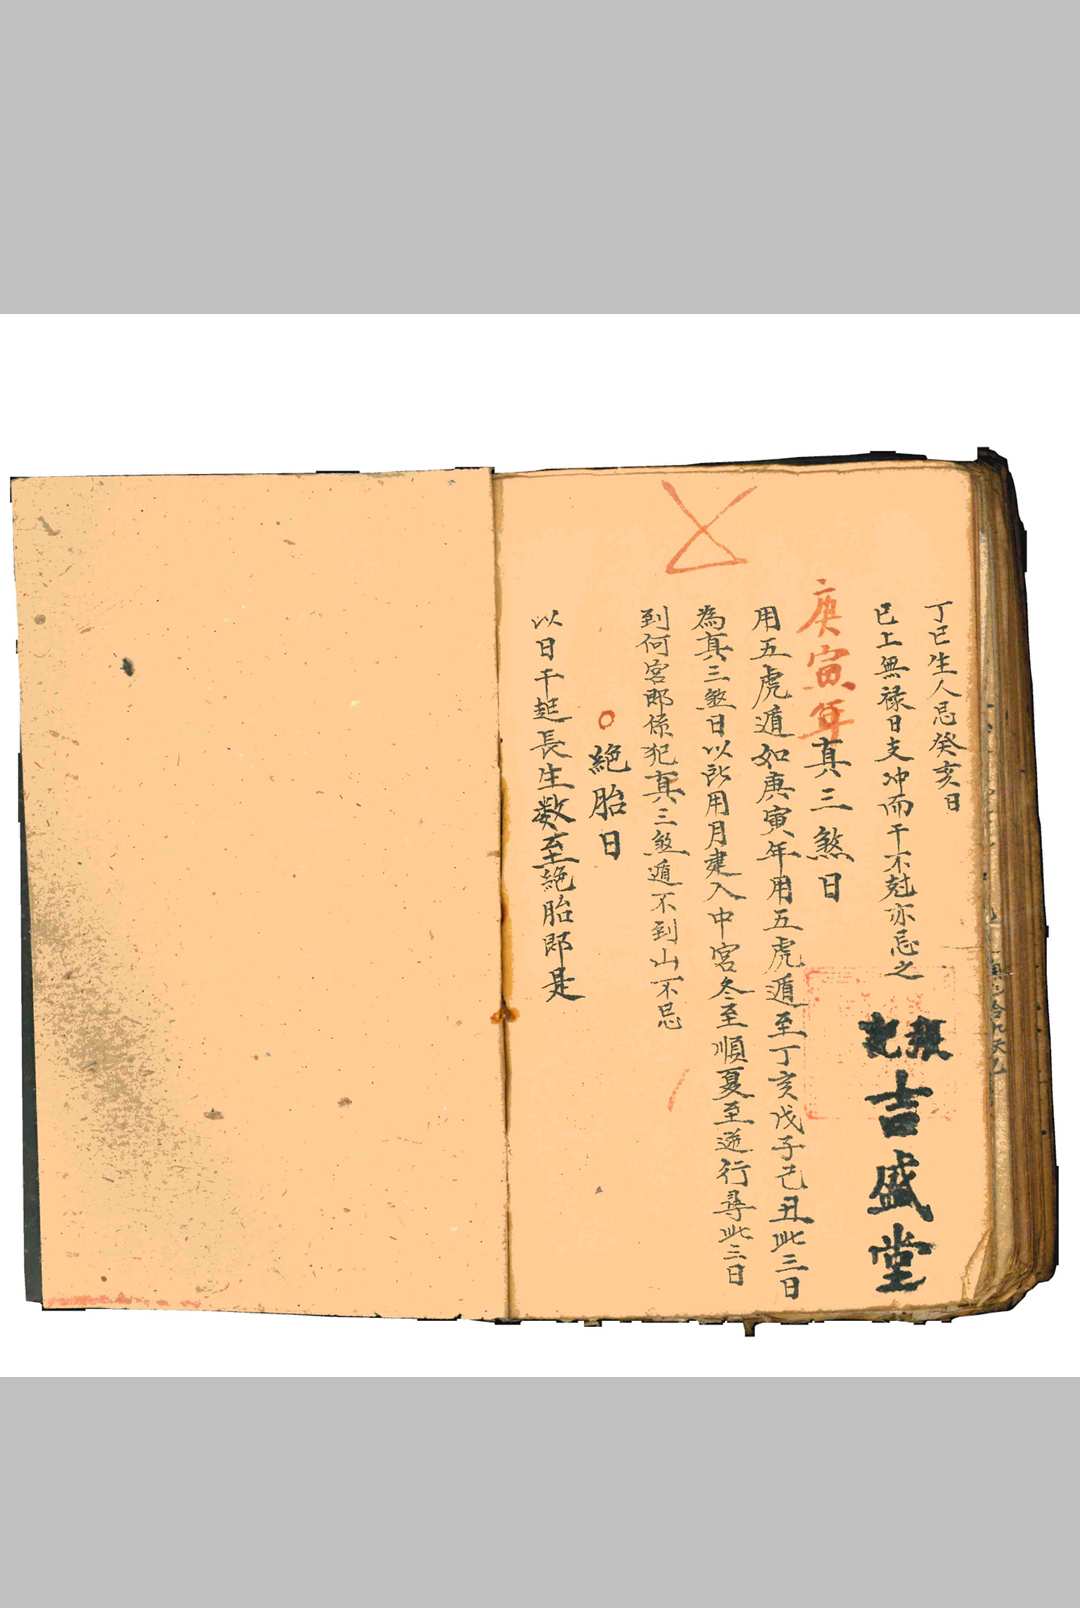 丁巳生人忌癸亥日
已上無禄日支冲而干不尅亦忌之
張記
吉盛堂
庚寅年真三煞日
用五虎遁如庚寅年用五虎遁至丁亥戊子己丑此三日
為真三煞日以所用月建入中宮冬至順夏至逆行尋此三日
到何宮即係犯真三煞遁不到山不忌
絕胎日
以日干起長生数至絕胎即是